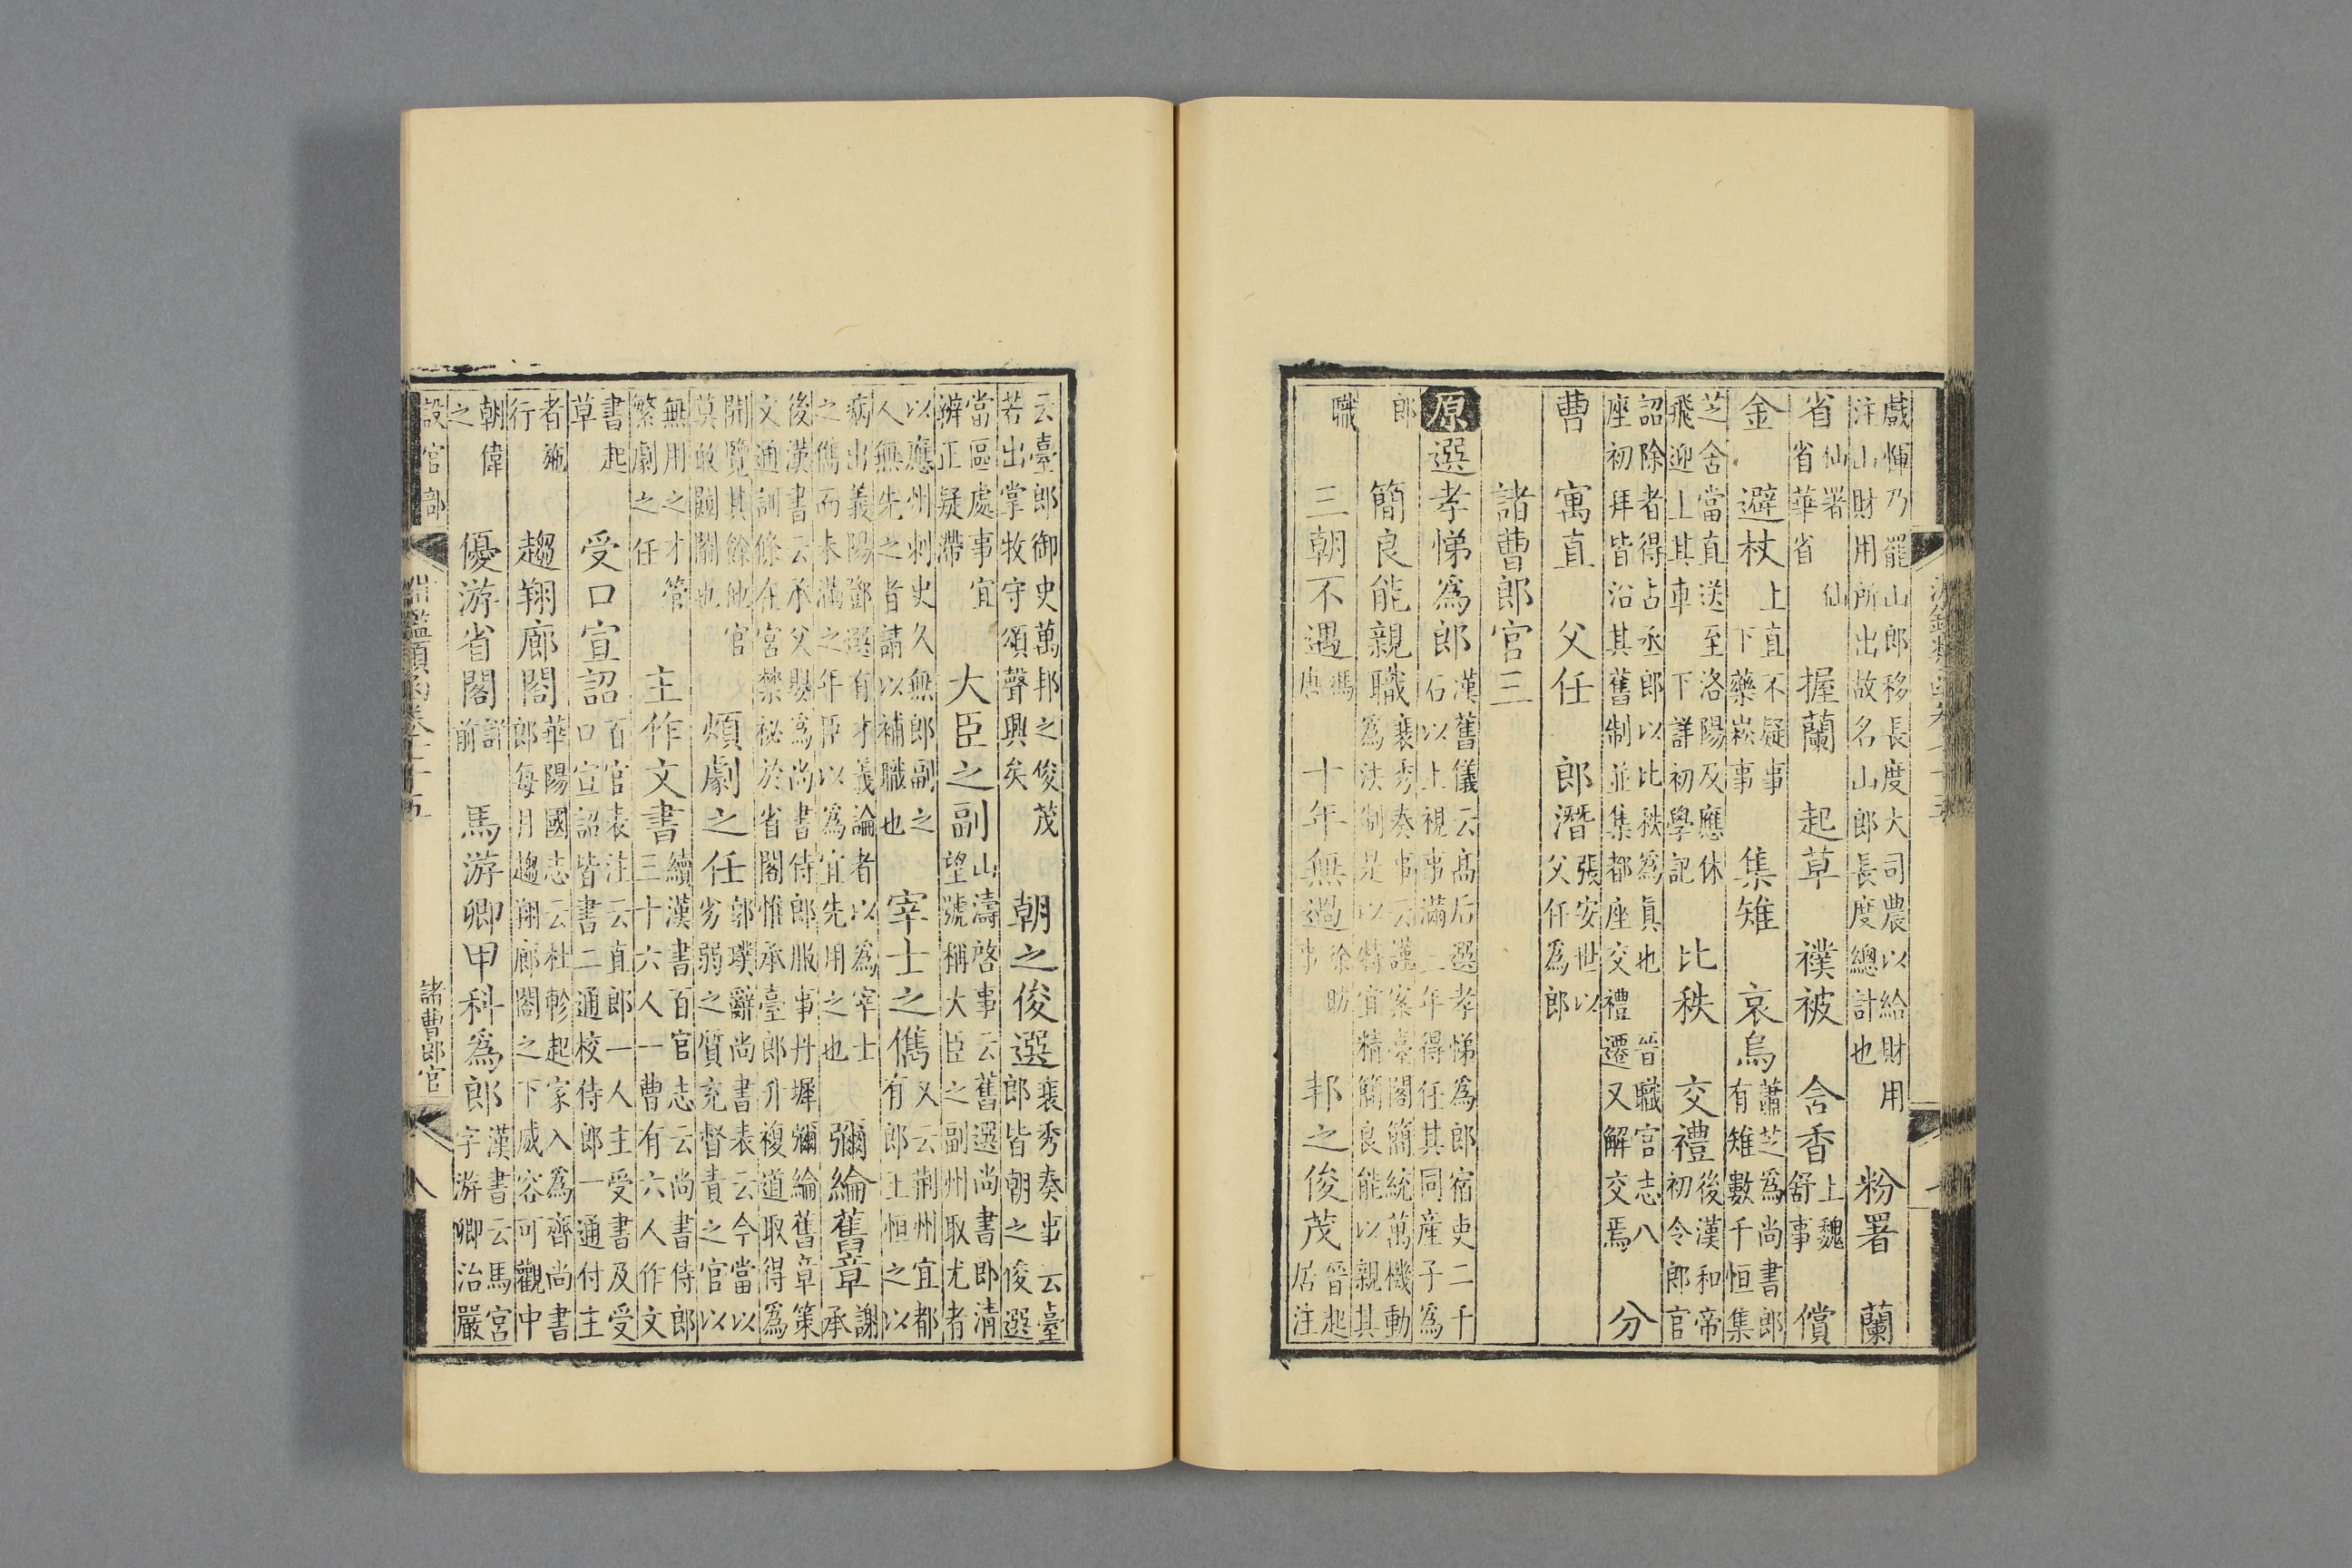 戲惲乃罷山郎移長度大司農以給財用注山財用所出故名山郎長度總計也 粉署 蘭
省仙署 仙省華省 握蘭 起草 襆被 含香上魏舒事 償
金 避杖上直不疑事下藥崧事 集雉 哀烏蕭芝爲尚書郎有雉數千恒集
芝舍當直送至洛陽及應休飛迎上其車 下詳初學記 比秩 交禮後漢和帝初令郎官
詔除者得占丞郎以比秩爲眞也 晉職官志八座初拜皆沿其舊制並集都座交禮遷又解交焉 分
曹 寓直 父任 郎潛張安世以父任爲郎
諸曹郎官三
原選孝悌爲郎漢舊儀云高后選孝悌爲郎宿吏二千石以上視事滿二年得任其同產子爲
郎 簡良能親職裴秀奏事云謹案臺閣簡統萬機動爲法制是以特宜精簡良能以親其
職 三朝不遇馮唐 十年無過徐昉事 邦之俊茂晉起居注
云臺郎御史萬邦之俊茂若出掌牧守頌聲興矣 朝之俊選裴秀奏事云臺郎皆朝之俊選
當區處事宜辨正疑滯 大臣之副山濤啓事云舊選尚書郎清望號稱大臣之副州取尤者
以應州刺史久無郎副之人無先之者請以補職也 宰士之儁又云荆州宜都有郎王恒之以
病出義陽鄧選有才義論者以爲宰士之儁而未滿之年臣以爲宜先用之也 彌綸舊章謝承
後漢書云承父嬰爲尚書侍郎服事丹墀彌綸舊章策文通訓條在宮禁祕於省閣惟承臺郎升複道取得爲
開覽其餘他官莫敢闚闟也 煩劇之任郭璞辭尚書表云今當以劣弱之質充督責之官以
無用之才管繁劇之任 主作文書續漢書百官志云尚書侍郎三十六人一曹有六人作文
書起草 受口宣詔百官表注云直郎一人主受書及受口宣詔皆書二通校侍郎一通付主
者施行 趨翔廊閤華陽國志云杜軫起家入爲齊尚書郎每月趨翔廊閣之下威容可觀中
朝偉之 優游省閣詳前 馬游卿甲科爲郎漢書云馬宮字游卿治嚴
設官部 淵鑑類函卷七十五 諸曹郎官 八